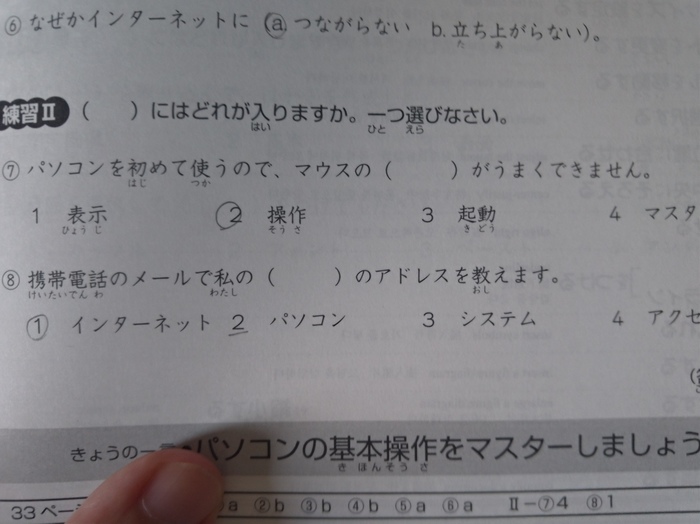 ⑥ なぜかインターネットに ⓐ つながらない b. 立ち上がらない)。
た あ
練習Ⅱ ( )にはどれが入りますか。一つ選びなさい。
はい ひと えら
⑦ パソコンを初めて使うので、マウスの( )がうまくできません。
はじ つか
1 表示 2 操作 3 起動 4 マスタ
ひょうじ そうさ きどう
⑧ 携帯電話のメールで私の( )のアドレスを教えます。
けいたいでんわ わたし おし
1 インターネット 2 パソコン 3 システム 4 アクセ
きょうの一言 パソコンの基本操作をマスターしましょう
きほんそうさ
33ペー a ②b ③b ④b ⑤a ⑥a Ⅱ-⑦4 ⑧1